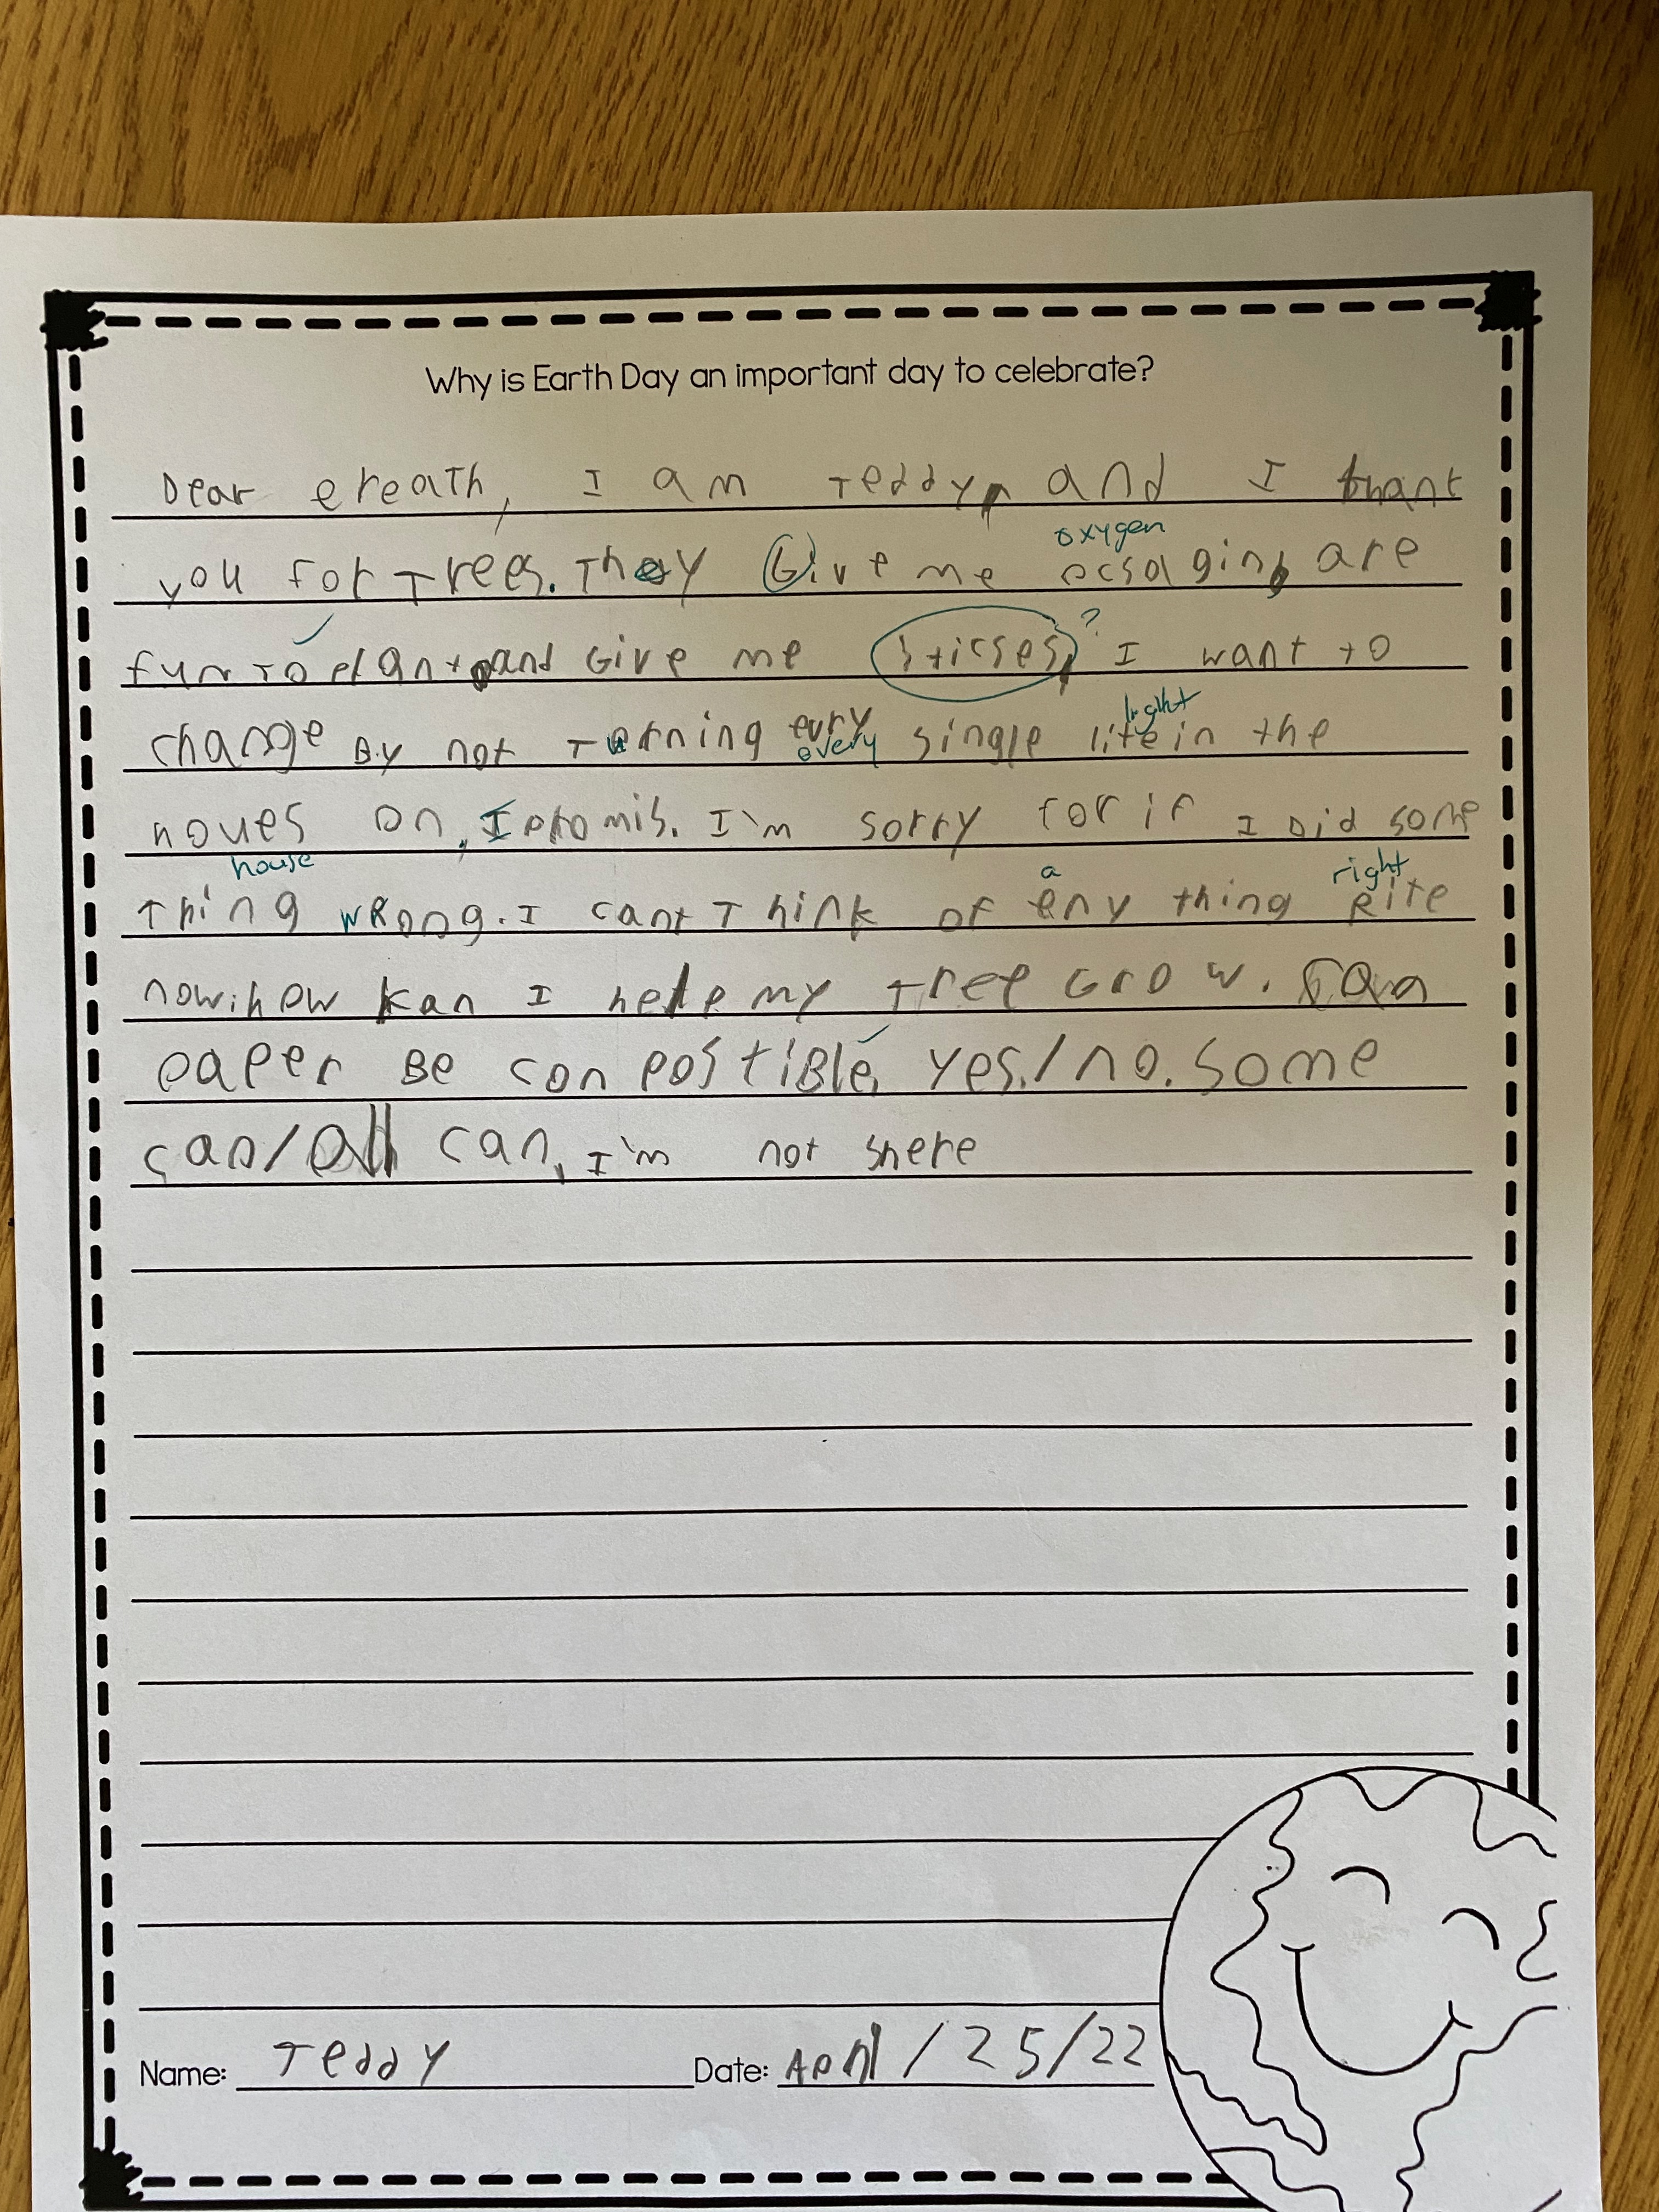 Why is Earth Day an important day to celebrate?
Dear ereath, I am Teddy, and I thant
oxygen
you for Trees. They Give me ocsagin, are
?
fun To plant, and Give me sticses, I want to
light
change By not Turning evry single lite in the
every
houes on, I promis. I'm sorry for if I Did some
house a right
Thing wRong. I cant Think of eny thing Rite
now. how kan I help my Tree Grow. Can
paper Be conpostible, yes./no. Some
can/all can, I'm not shere
Name: Teddy Date: April/25/22